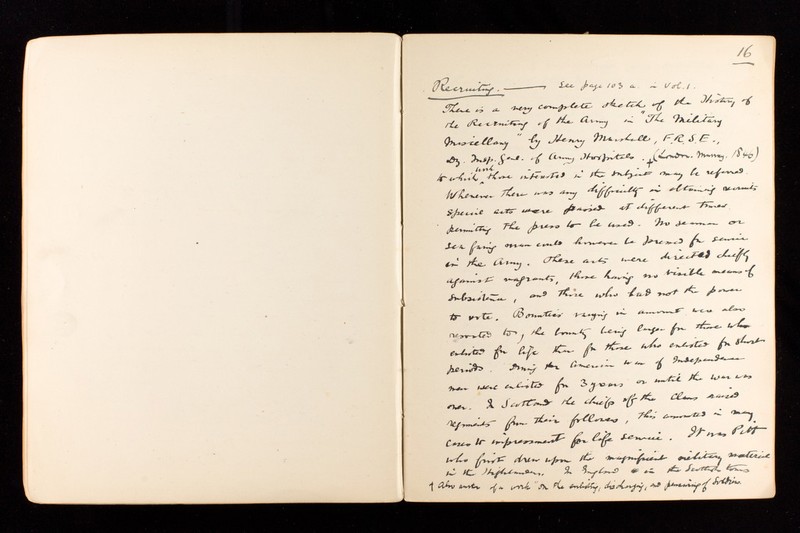 16
Recruiting. — See page 103 a. in Vol. 1.
There is a very complete sketch of the History of
the Recruiting of the Army in "The Military
Miscellany" by Henry Marshall, F.R.S.E.,
Dy. Insp. Genl. of Army Hospitals. + (London. Murray. 1846)
to which work those interested in the subject may be referred.
Whenever there was any difficulty in obtaining recruits
special acts were passed at different times
permitting the press to be used. No seaman or
sea faring man could however be pressed for service
in the Army. These acts were directed chiefly
against vagrants, those having no visible means of
subsistence, and those who had not the power
to vote. Bounties varying in amount were also
resorted to, the bounty being larger for those who
enlisted for life than for those who enlisted for short
periods. During the American War of Independence
men were enlisted for 3 years or until the war was
over. In Scotland the chiefs of the Clans raised
regiments from their followers, this amounted in many
cases to impressment for life service. It was Pitt
who first drew upon the magnificent military material
in the Highlanders. In England & in the Scottish towns
+ Also author of a work "On the enlisting, discharging, and pensioning of Soldiers